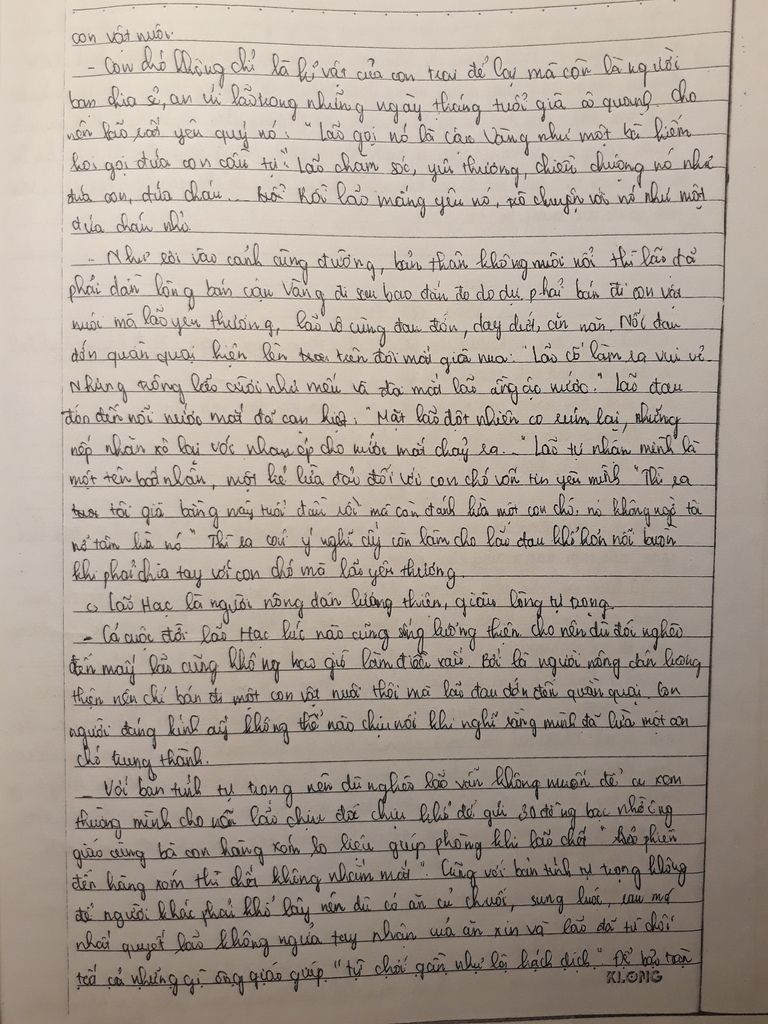 con vật nuôi.
- Con chó không chỉ là kỉ vật của con trai để lại mà còn là người
bạn chia sẻ, an ủi lão trong những ngày tháng tuổi già cô quạnh. Cho
nên lão rất yêu quý nó: "Lão gọi nó là cậu Vàng như một bà hiếm
hoi gọi đứa con cầu tự". Lão chăm sóc, yêu thương, chiều chuộng nó như
đứa con, đứa cháu... Rồi lão mắng yêu nó, trò chuyện với nó như một
đứa cháu nhỏ.
- Như rơi vào cảnh cùng đường, bản thân không nuôi nổi thì lão đã
phải dằn lòng bán cậu Vàng đi sau bao đắn đo do dự. phải bán đi con vật
nuôi mà lão yêu thương, lão vô cùng đau đớn, day dứt, ăn năn. Nỗi đau
đớn quằn quại hiện lên trên đôi mắt già nua: "Lão cố làm ra vui vẻ.
Nhưng trông lão cười như mếu và đôi mắt lão ầng ậc nước." Lão đau
đớn đến nỗi nước mắt đã cạn kiệt: "Mặt lão đột nhiên co rúm lại, những
nếp nhăn xô lại với nhau ép cho nước mắt chảy ra..." Lão tự nhận mình là
một tên bất nhân, một kẻ lừa đảo đối với con chó vốn tin yêu mình "Thì ra
tôi già bằng này tuổi đầu rồi mà còn đánh lừa một con chó, nó không ngờ tôi
nỡ tâm lừa nó" Thì ra cái ý nghĩ ấy còn làm cho lão đau khổ hơn nỗi buồn
khi phải chia tay với con chó mà lão yêu thương.
c, Lão Hạc là người nông dân lương thiện, giàu lòng tự trọng.
- Cả cuộc đời lão Hạc lúc nào cũng sống lương thiện cho nên dù đói nghèo
đến mấy lão cũng không bao giờ làm điều xấu. Bởi là người nông dân lương
thiện nên chỉ bán đi một con vật nuôi thôi mà lão đau đớn đến quằn quại. Con
người đáng kính ấy không thể nào chịu nổi khi nghĩ rằng mình đã lừa một con
chó trung thành.
- Với bản tính tự trọng nên dù nghèo lão vẫn không muốn để ai xem
thường mình cho nên lão chịu đói chịu khổ để gửi 30 đồng bạc nhờ ông
giáo cùng bà con hàng xóm lo liệu giúp phòng khi lão chết "để phiền
đến hàng xóm thì chết không nhắm mắt". Cũng với bản tính tự trọng không
để người khác phải khổ lây nên dù có ăn củ chuối, sung luộc, rau má
nhất quyết lão không ngửa tay nhận của ăn xin và lão đã từ chối
tất cả những gì ông giáo giúp "từ chối gần như là hách dịch." Để bảo toàn
KLONG